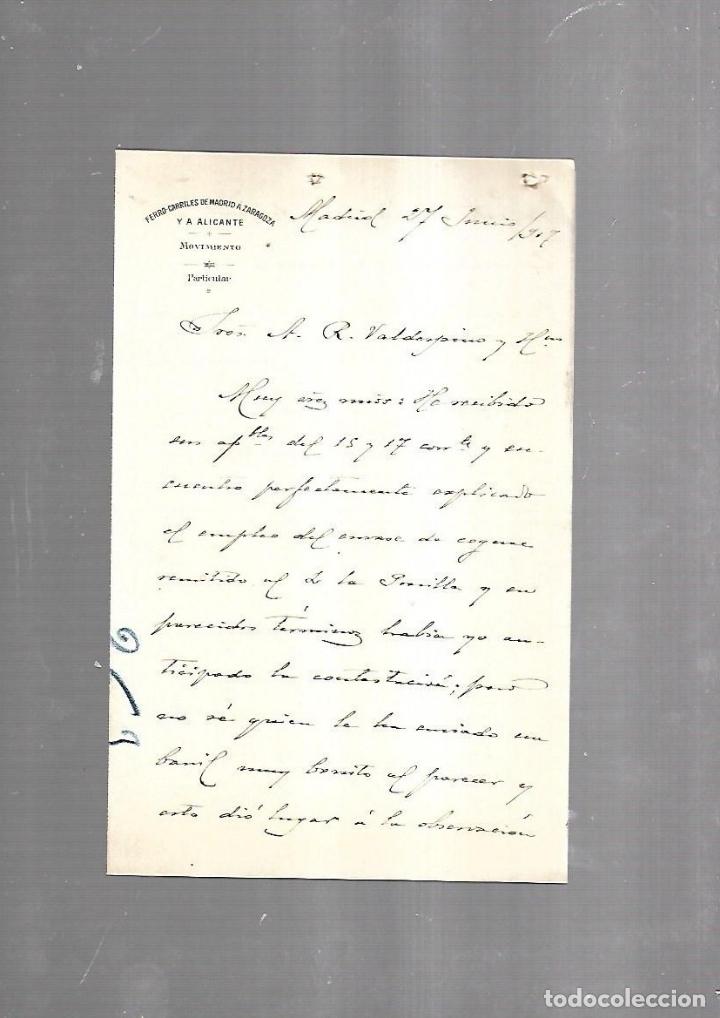 FERRO-CARRILES DE MADRID A ZARAGOZA
Y A ALICANTE
MOVIMIENTO
Particular
Madrid 27 Junio/907
Sres. A. R. Valdespino y Hno
Muy Sres mios: He recibido
sus aptbles del 15 y 17 corrte y en-
cuentro perfectamente explicado
el empleo del envase de cognac
remitido al de la Pinilla y en
parecidos términos habia yo an-
ticipado la contestación; pero
no sé quien le ha enviado un
barril muy bonito al parecer y
esto dió lugar á la observación
todocoleccion